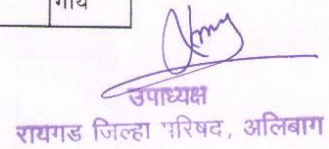 गाय
उपाध्यक्ष
रायगड जिल्हा परिषद, अलिबाग